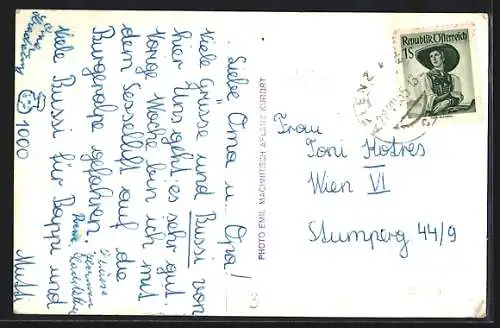 Liebe Oma u. Opa!
Viele Grüsse und Bussi von
hier. Uns geht es sehr gut.
Vorige Woche bin ich mit
dem Sessellift auf die
Bürgeralpe gefahren.
Viele Bussi für Bappi und
Mutti
1000
PHOTO EMIL MACHNITSCH AFLENZ KURORT
Republik Österreich
1S
Frau
Toni Kotres
Wien VI
Stumperg 44/9